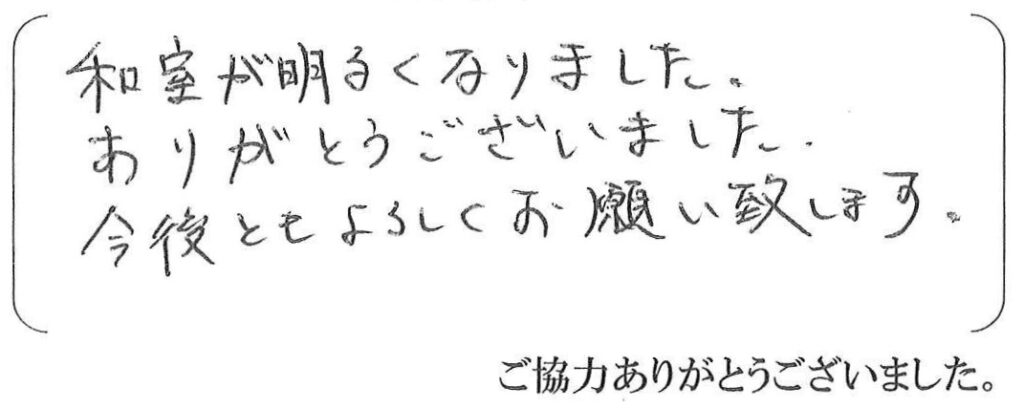 和室が明るくなりました。
ありがとうございました.
今後ともよろしくお願い致します。
ご協力ありがとうございました。